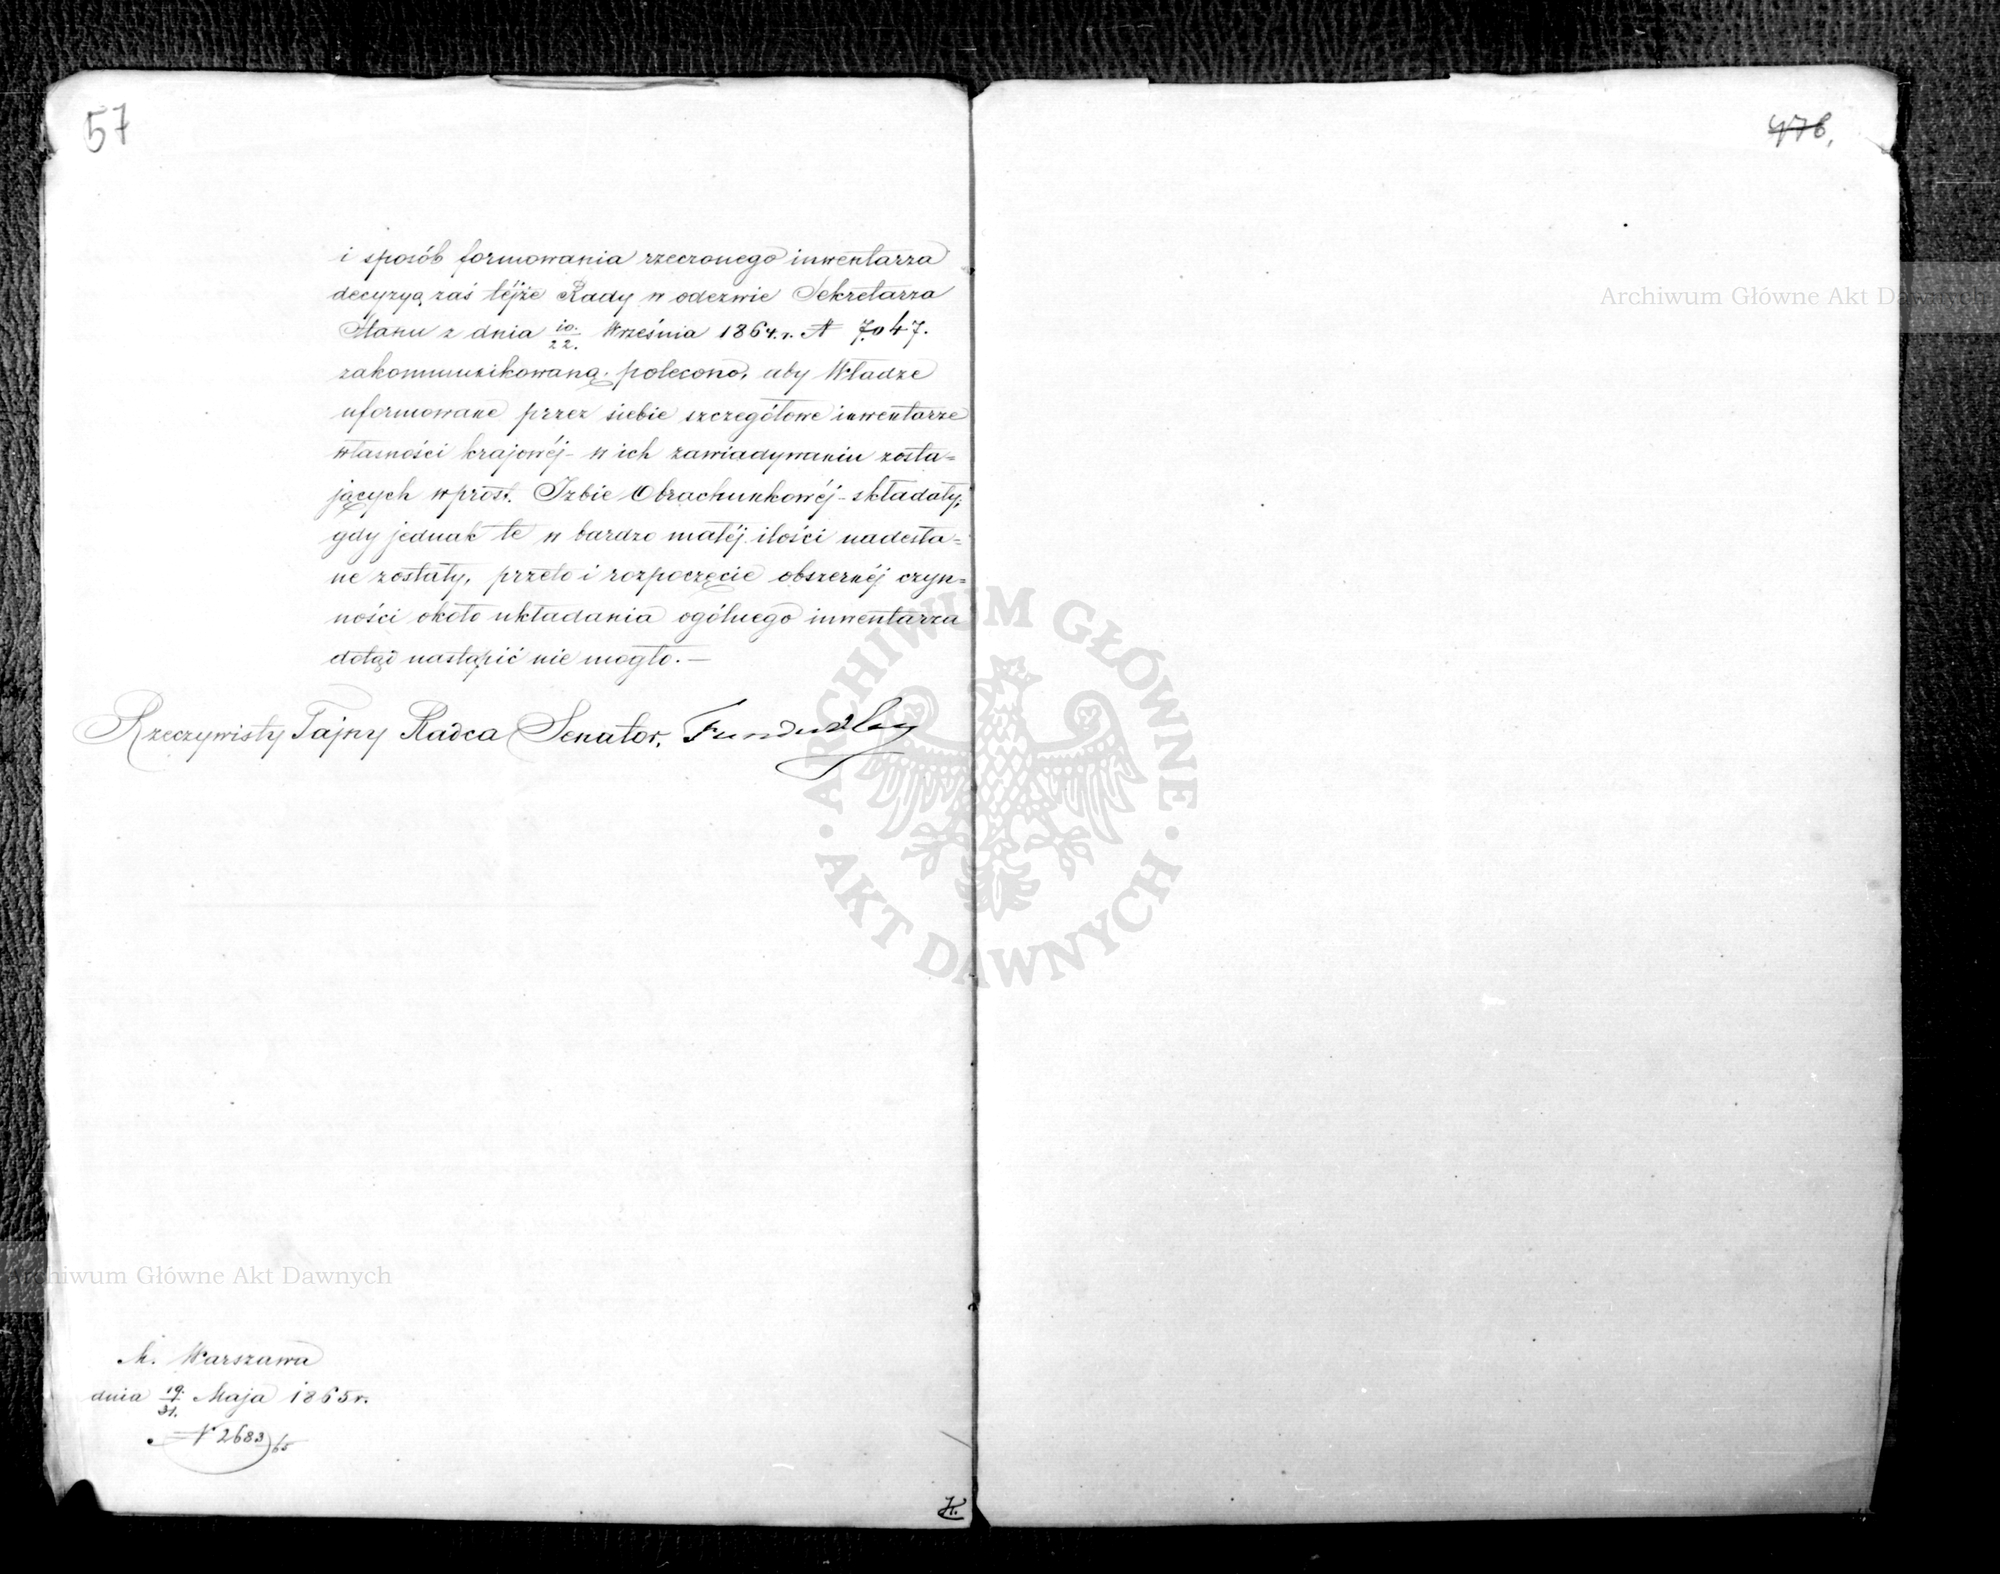 57
i sposób formowania rzeczonego inwentarza
decyzyą zaś téjże Rady w odezwie Sekretarza
Stanu z dnia 10/22. Września 1864. r. N 7,047.
zakommunikowaną. polecono, aby Władze
uformowane przez siebie szczegółowe inwentarze
własności krajowéj w ich zawiadywaniu zosta=
jących wprost. Izbie Obrachunkowéj składały,
gdy jednak te w bardzo małéj ilości nadesła=
ne zostały, przeto i rozpoczęcie obszernéj czyn=
ności około układania ogólnego inwentarza
dotąd nastąpić nie mogło. —
Rzeczywisty Tajny Radca Senator, Fundukley
M. Warszawa
dnia 19/31. Maja 1865 r.
N 2683/65
K.
476,
Archiwum Główne Akt Dawnych
ARCHIWUM GŁÓWNE
AKT DAWNYCH
Archiwum Główne Akt Dawnych